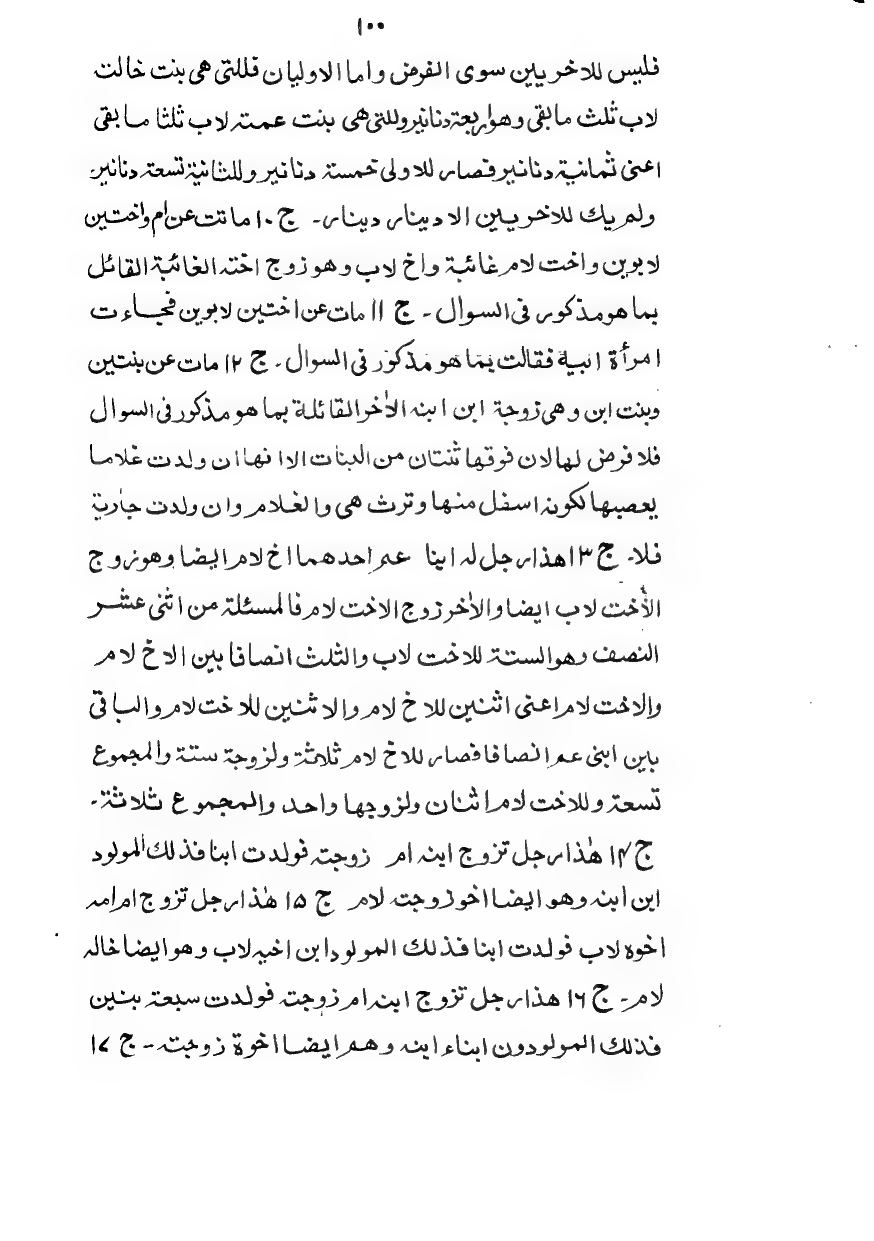 ١٠٠
فليس للاخريين سوى الفرض واما الاوليان فللتى هى بنت خالت
لاب ثلث ما بقى وهو اربعة دنانير وللتى هى بنت عمته لاب ثلثا ما بقى
اعنى ثمانية دنانير فصار للاولى خمسة دنانير وللثانية تسعة دنانير۔
ولم يك للاخريين الا دينار دينار۔ ج ١٠ ماتت عن ام واختين
لابوين واخت لام غائبة واخ لاب وهو زوج اخته الغائبة القائل
بما هو مذكور فى السوال۔ ج ١١ مات عن اختين لابوين فجاءت
امرأة ابيه فقالت بما هو مذكور فى السوال۔ ج ١٢ مات عن بنتين
وبنت ابن وهى زوجة ابن ابنه الأخر القائلة بما هو مذكور فى السوال
فلا فرض لها لان فوقها ثنتان من البنات الا انها ان ولدت غلاما
يعصبها لكونه اسفل منها وترث هى والغلام وان ولدت جارية
فلا۔ ج ١٣ هذا رجل له ابنا عم احدهما اخ لام ايضا وهو زوج
الأخت لاب ايضا والأخر زوج الاخت لام فالمسئلة من اثنى عشر
النصف وهو الستة للاخت لاب والثلث انصافا بين الاخ لام
والاخت لام اعنى اثنين للاخ لام والاثنين للاخت لام والباقى
بين ابنى عم انصافا فصار للاخ لام ثلاثة ولزوجة ستة والمجموع
تسعة وللاخت لام اثنان ولزوجها واحد والمجموع ثلاثة۔
ج ١٤ هذا رجل تزوج ابنه ام زوجته فولدت ابنا فذلك المولود
ابن ابنه وهو ايضا اخو زوجته لام ج ١٥ هذا رجل تزوج ام امه
اخوه لاب فولدت ابنا فذلك المولود ابن اخيه لاب وهو ايضا خاله
لام۔ ج ١٦ هذا رجل تزوج ابنه ام زوجته فولدت سبعة بنين
فذلك المولودون ابناء ابنه وهم ايضا اخوة زوجته۔ ج ١٧